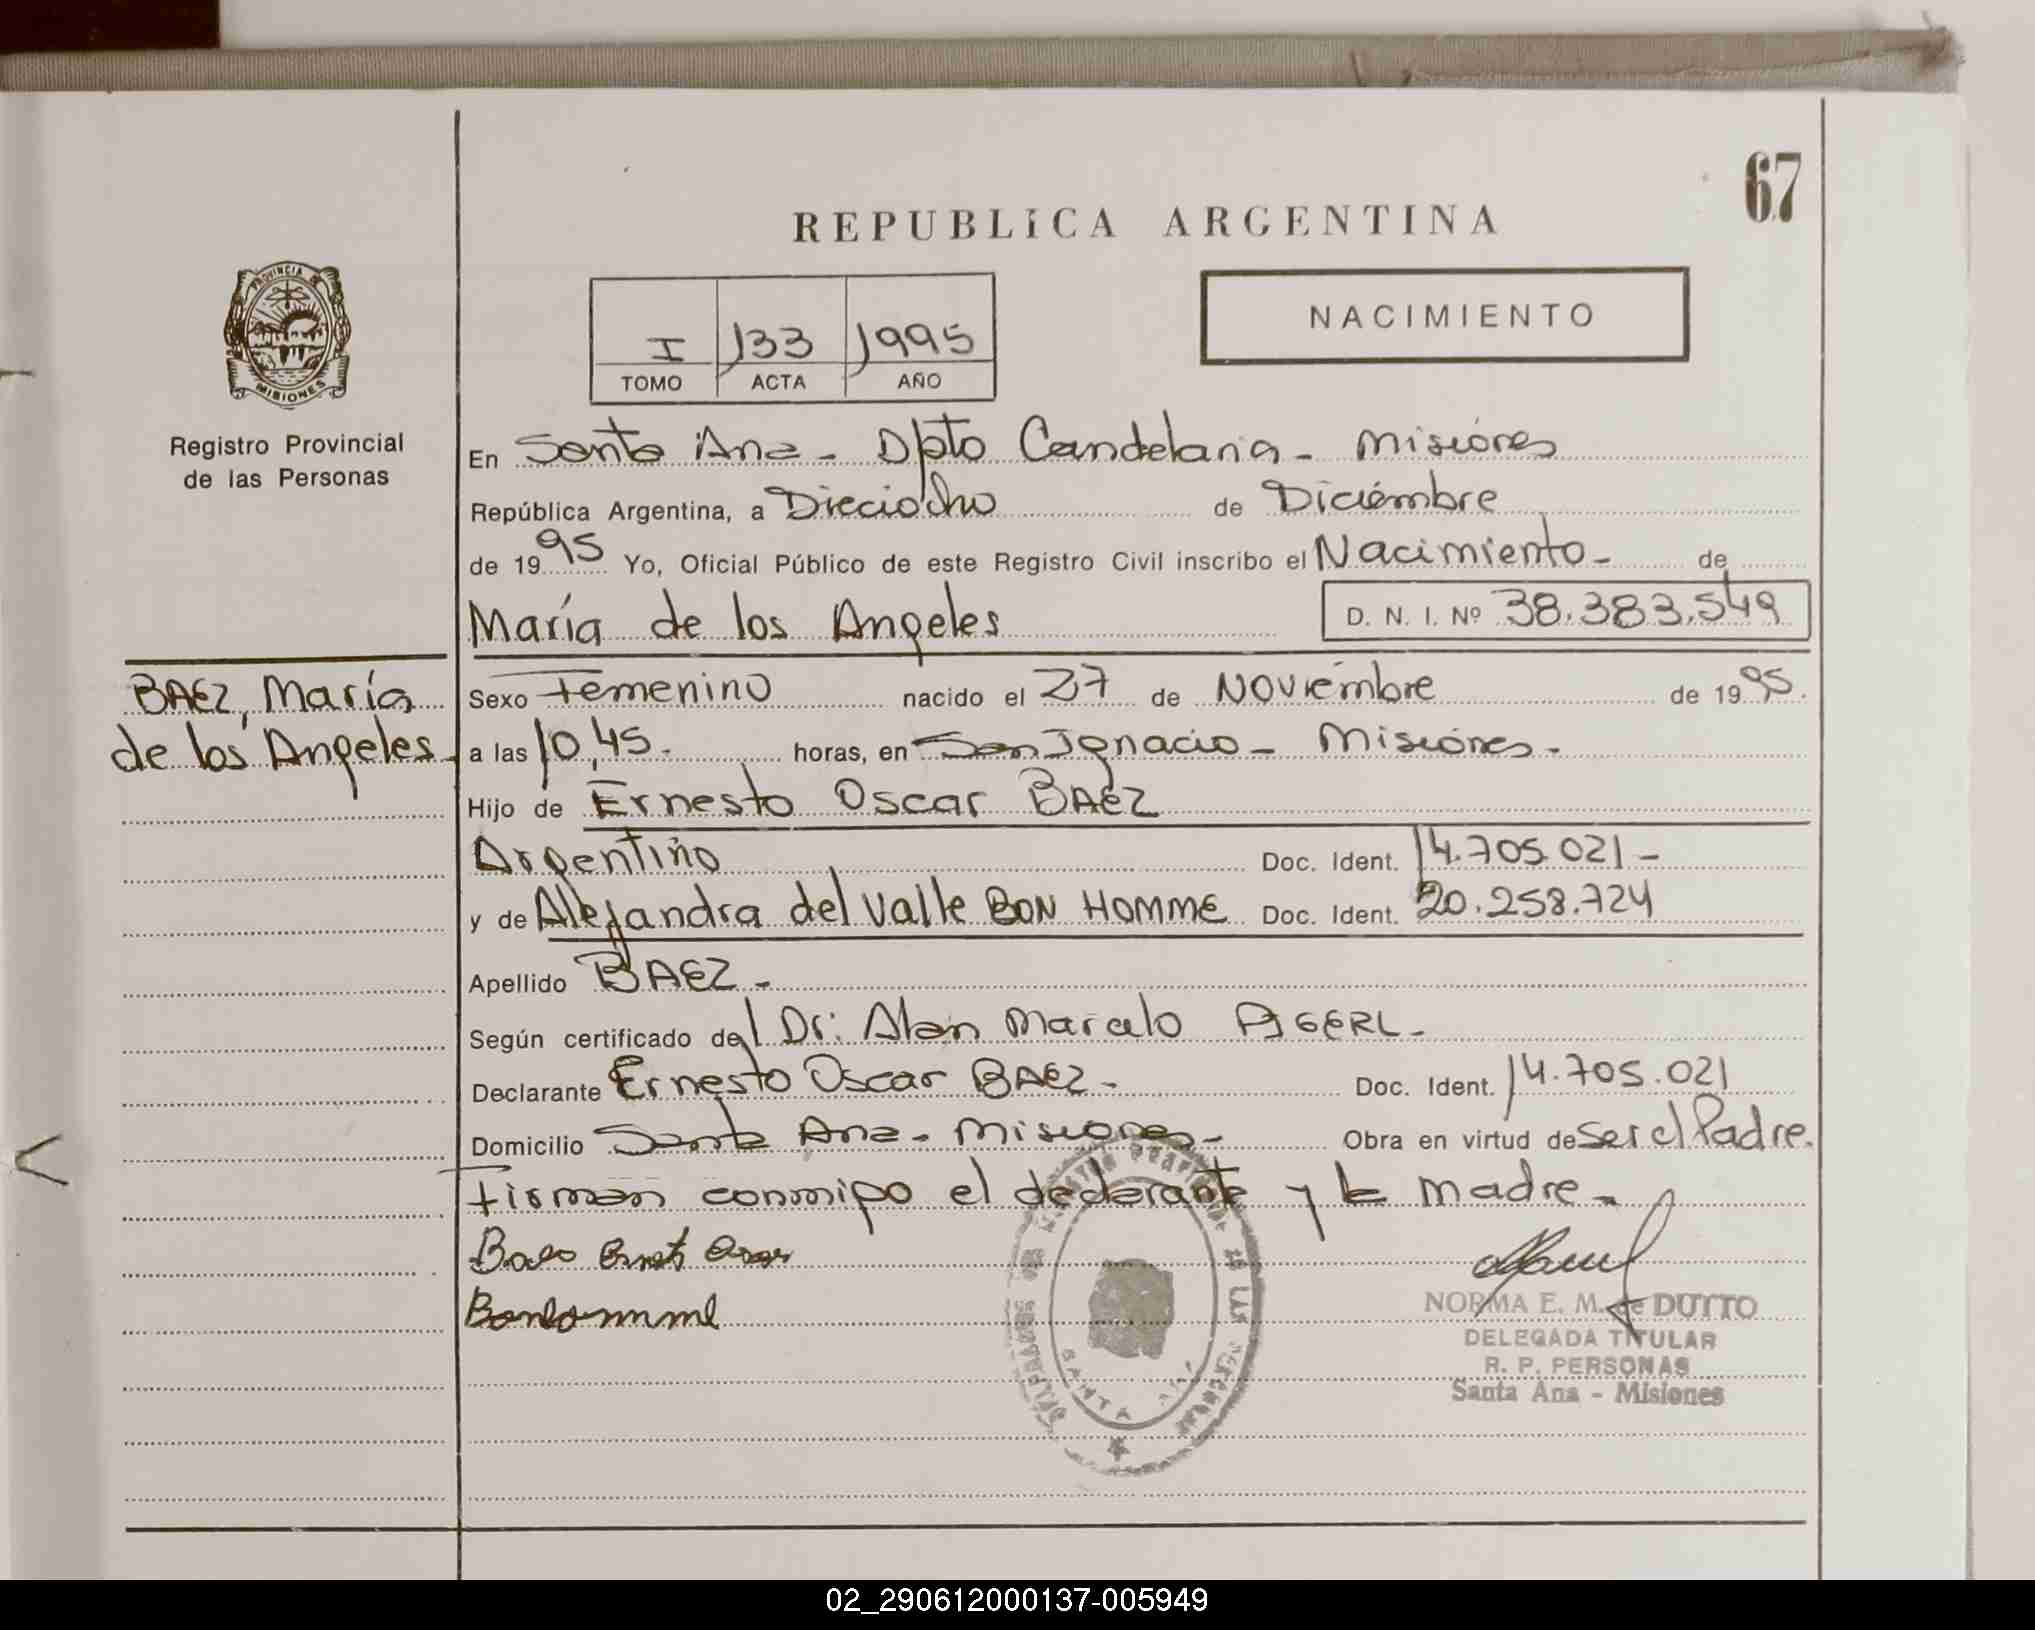 67
REPUBLICA ARGENTINA
PROVINCIA DE
MISIONES
Registro Provincial
de las Personas
I 133 1995
TOMO ACTA AÑO
NACIMIENTO
En Santa Ana - Dpto Candelaria - Misiones
República Argentina, a Dieciocho de Diciembre
de 1995 Yo, Oficial Público de este Registro Civil inscribo el Nacimiento - de
María de los Angeles D. N. I. Nº 38.383.549
BAEZ, María
de los Angeles
Sexo Femenino nacido el 27 de Noviembre de 1995.
a las 10,45. horas, en San Ignacio - Misiones.
Hijo de Ernesto Oscar BAEZ
Argentino Doc. Ident. 14.705.021 -
y de Alejandra del Valle BON HOMME Doc. Ident. 20.258.724
Apellido BAEZ -
Según certificado del Dr: Alan Marcelo AGERL -
Declarante Ernesto Oscar BAEZ - Doc. Ident. 14.705.021
Domicilio Santa Ana - Misiones - Obra en virtud de Ser el Padre.
Firman conmigo el declarante y la madre -
Baez Ernesto Oscar
Bonhomme
SANTA ANA
NORMA E. M. de DUTTO
DELEGADA TITULAR
R. P. PERSONAS
Santa Ana - Misiones
02_290612000137-005949